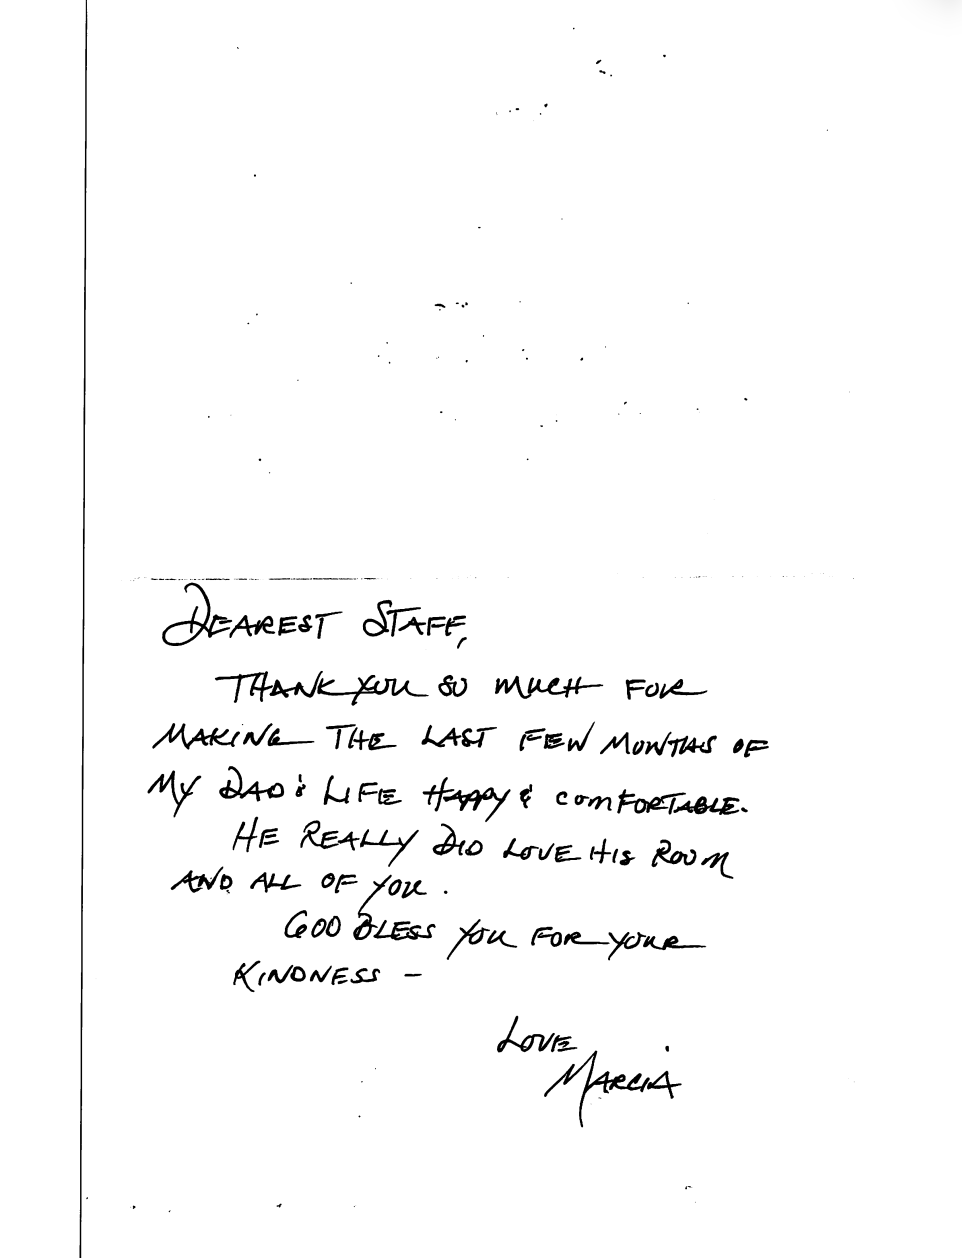 DEAREST STAFF,
THANK YOU SO MUCH FOR
MAKING THE LAST FEW MONTHS OF
MY DAD'S LIFE HAPPY & COMFORTABLE.
HE REALLY DID LOVE HIS ROOM
AND ALL OF YOU.
GOD BLESS YOU FOR YOUR
KINDNESS –
LOVE
MARCIA